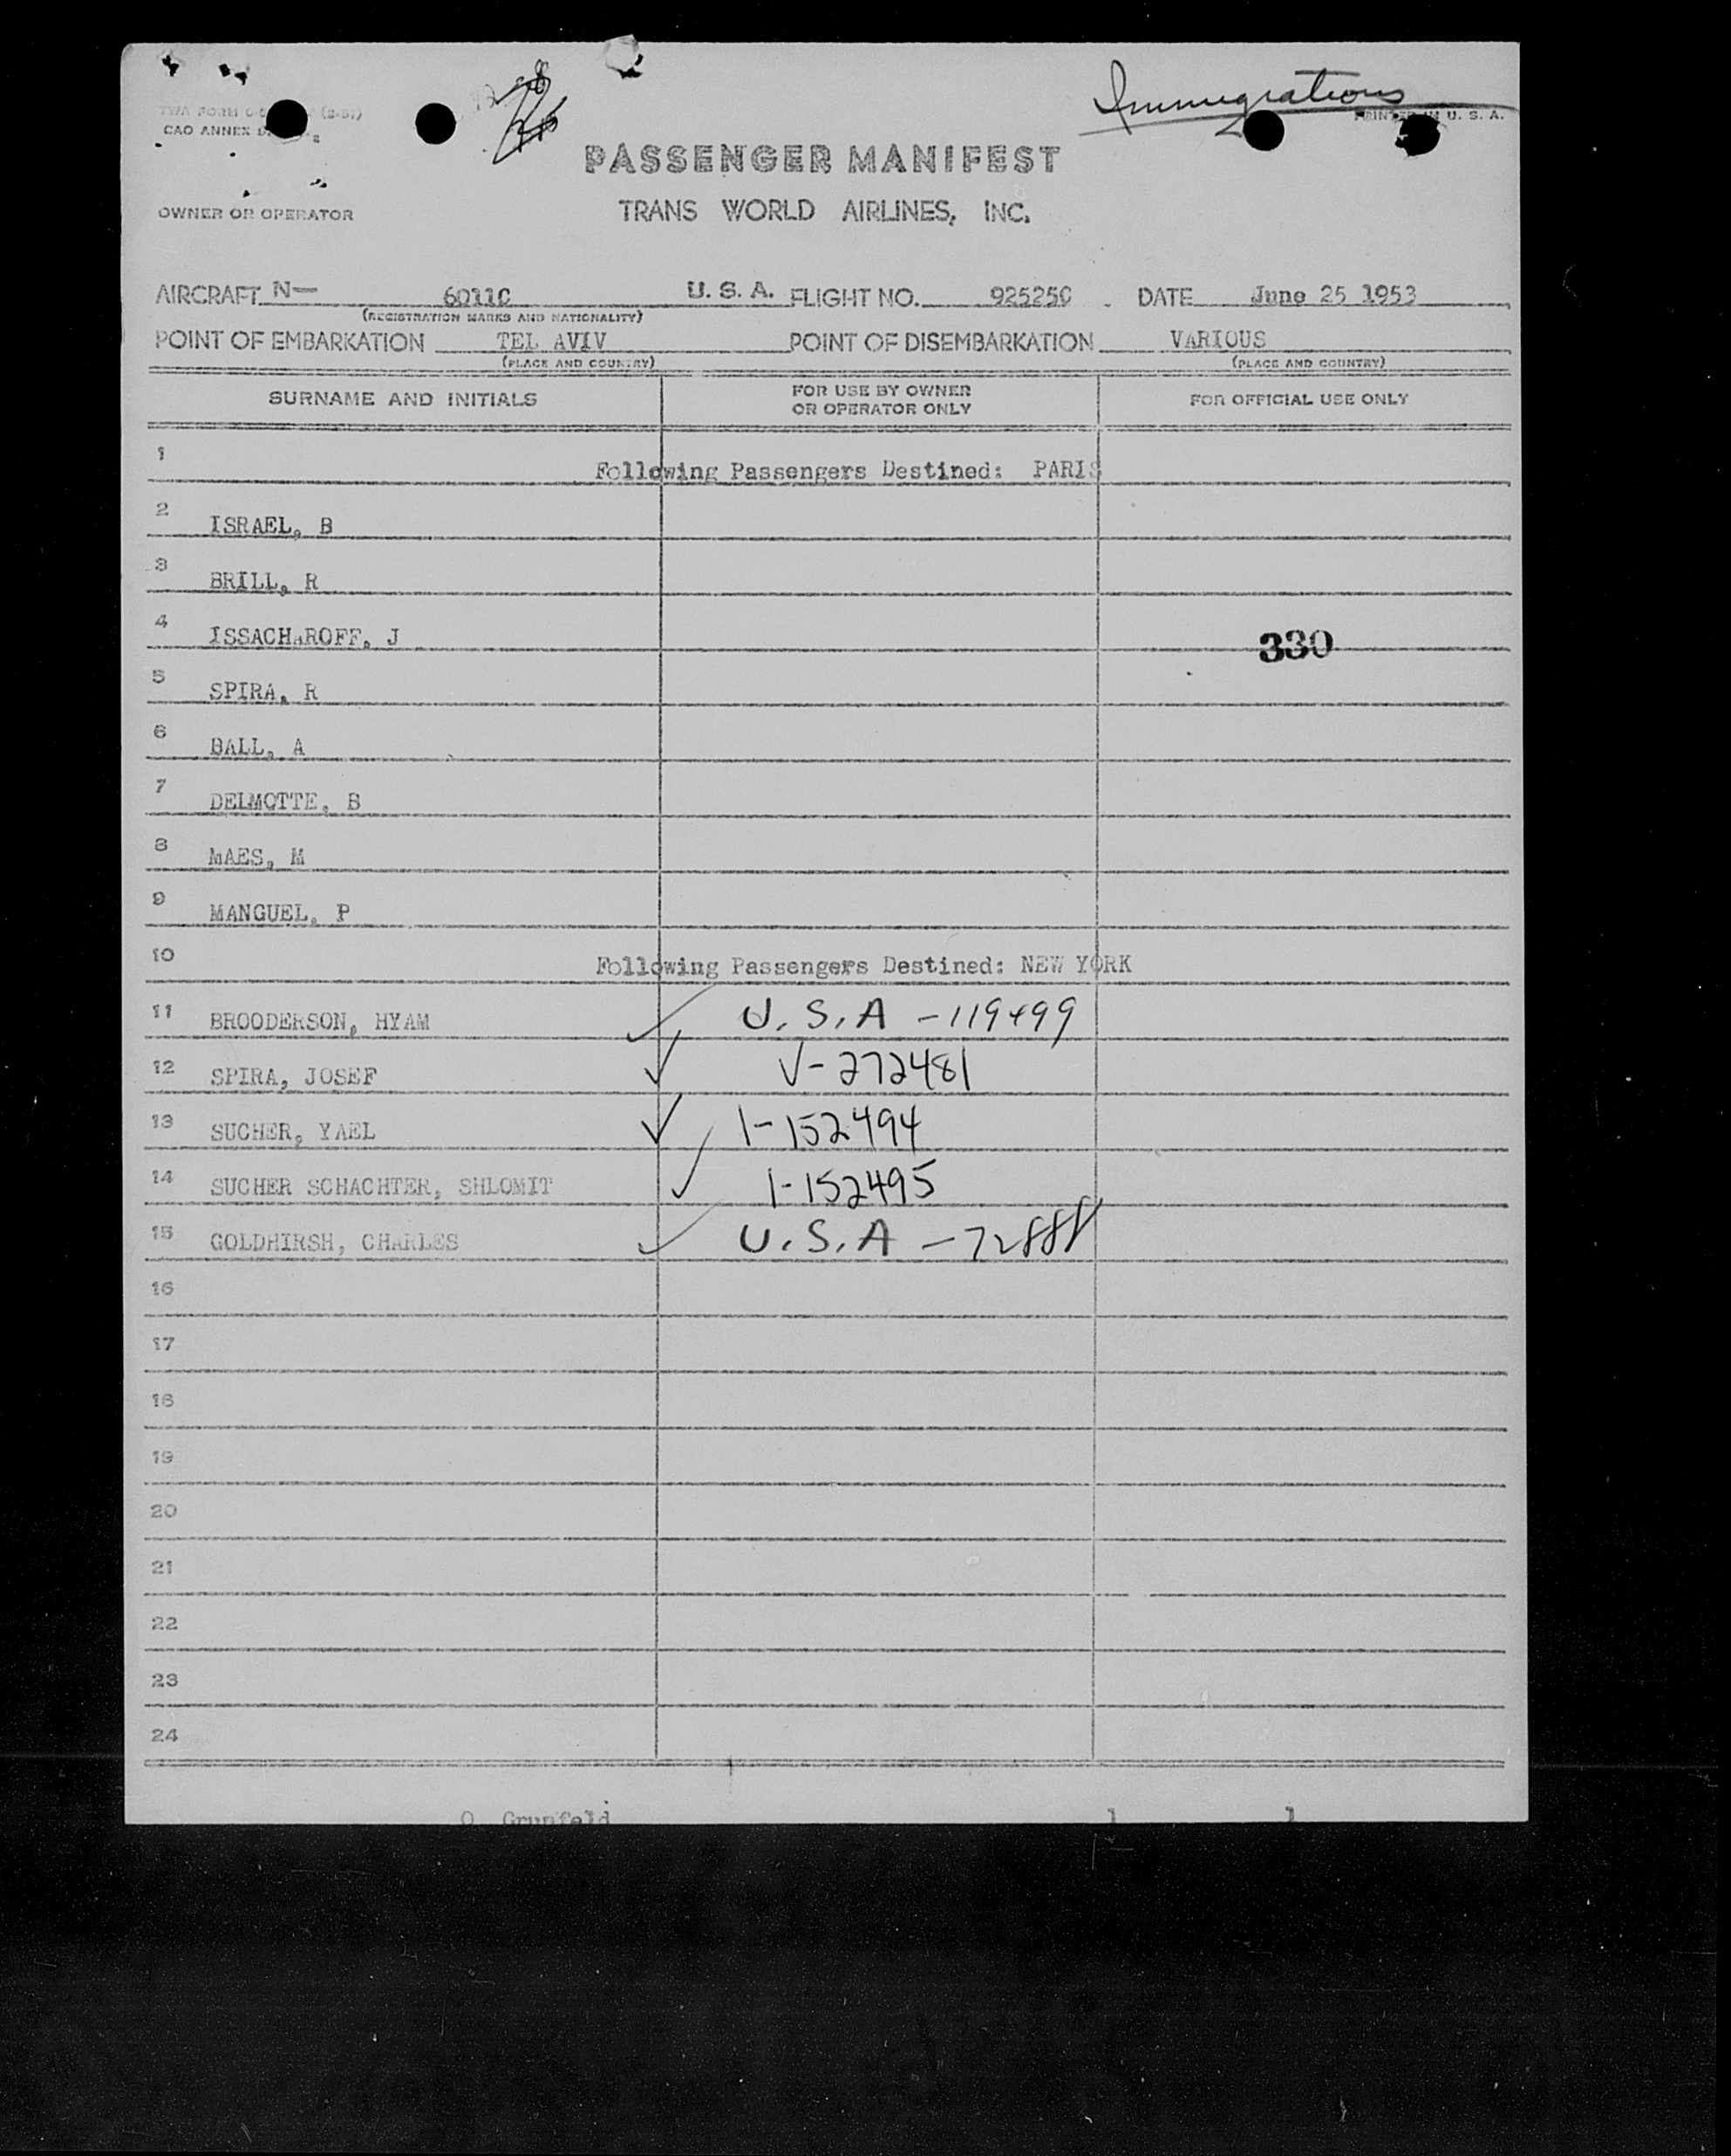 CAO ANNEX
PRINTED IN U. S. A.
Immigrations
PASSENGER MANIFEST
OWNER OR OPERATOR
TRANS WORLD AIRLINES, INC.
AIRCRAFT N— 6011C U. S. A. FLIGHT NO. 925250 DATE June 25 1953
(REGISTRATION MARKS AND NATIONALITY)
POINT OF EMBARKATION TEL AVIV POINT OF DISEMBARKATION VARIOUS
(PLACE AND COUNTRY) (PLACE AND COUNTRY)
SURNAME AND INITIALS FOR USE BY OWNER OR OPERATOR ONLY FOR OFFICIAL USE ONLY
1 Following Passengers Destined: PARIS
2 ISRAEL, B
3 BRILL, R
4 ISSACHAROFF, J 330
5 SPIRA, R
6 BALL, A
7 DELMOTTE, B
8 MAES, M
9 MANGUEL, P
10 Following Passengers Destined: NEW YORK
11 BROODERSON, HYAM ✓ U.S.A - 119499
12 SPIRA, JOSEF ✓ V-272481
13 SUCHER, YAEL ✓ 1-152494
14 SUCHER SCHACHTER, SHLOMIT ✓ 1-152495
15 GOLDHIRSH, CHARLES ✓ U.S.A - 72888
16
17
18
19
20
21
22
23
24
O Grunfeld 1 1